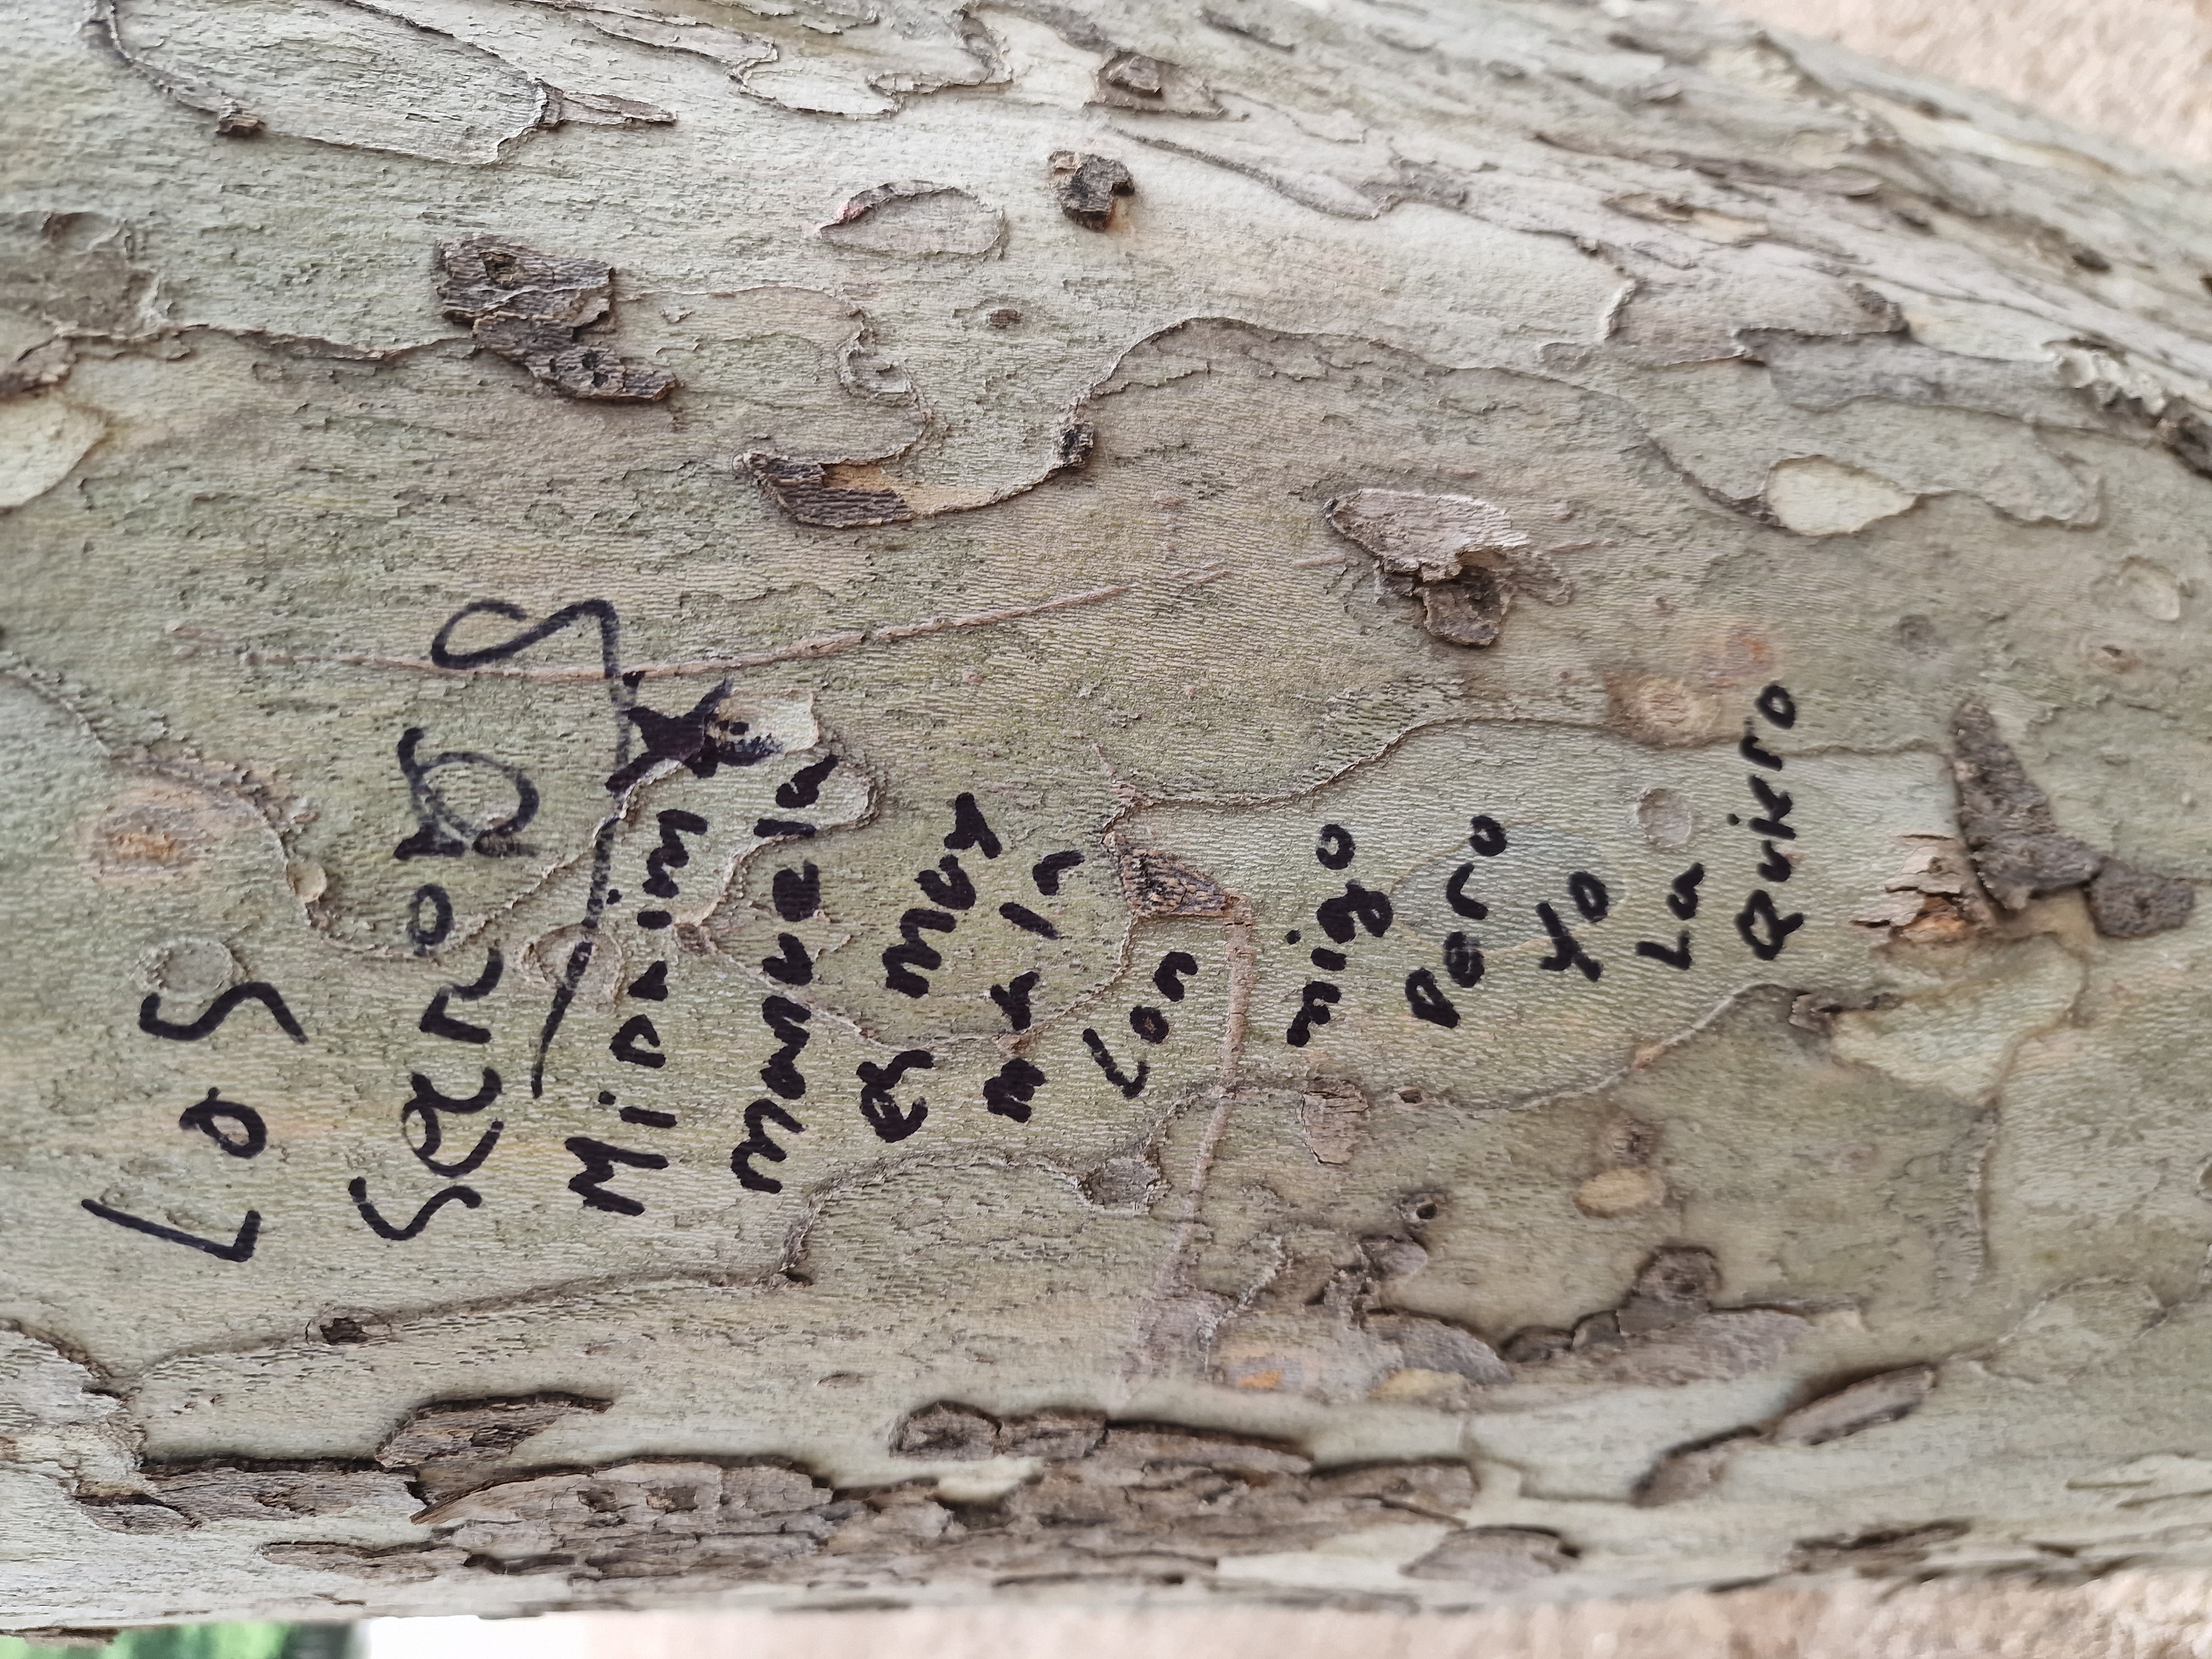 Los
Mi Prim
manuela
es muy
mala
con
migo
pero
yo
La
Quiero